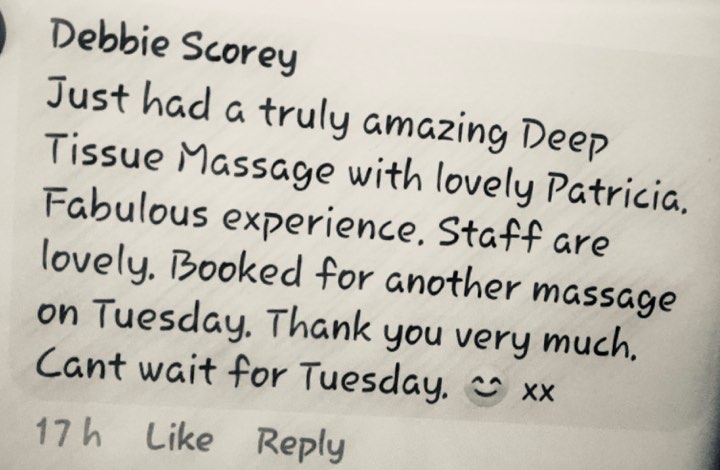 Debbie Scorey
Just had a truly amazing Deep
Tissue Massage with lovely Patricia.
Fabulous experience. Staff are
lovely. Booked for another massage
on Tuesday. Thank you very much.
Cant wait for Tuesday. 😊 xx
17h Like Reply